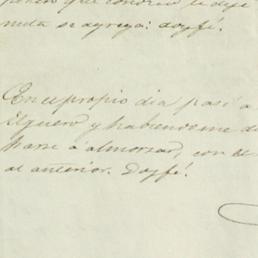 que condreo le deje
nuta se agrega: doyfé.
En el propio dia pasé a
Elguero y habiendome di
harse á almorzar, con el
al anterior. Doyfé.